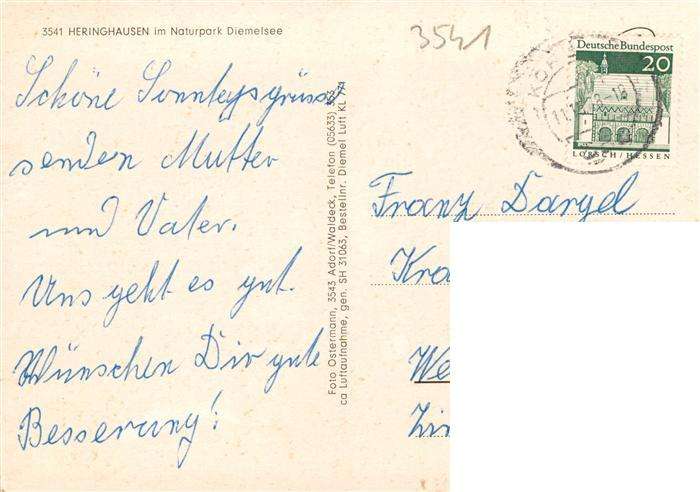 3541 HERINGHAUSEN im Naturpark Diemelsee
3541
Deutsche Bundespost
20
LORSCH / HESSEN
Schöne Sonntagsgrüsse
senden Mutter
und Vater.
Uns geht es gut.
Wünschen Dir gute
Besserung!
Foto Ostermann, 3543 Adorf/Waldeck, Telefon (05633)
ca Luftaufnahme, gen. SH 31063, Bestellnr. Diemel Luft KL 771
Franz Dargel
Kra
We